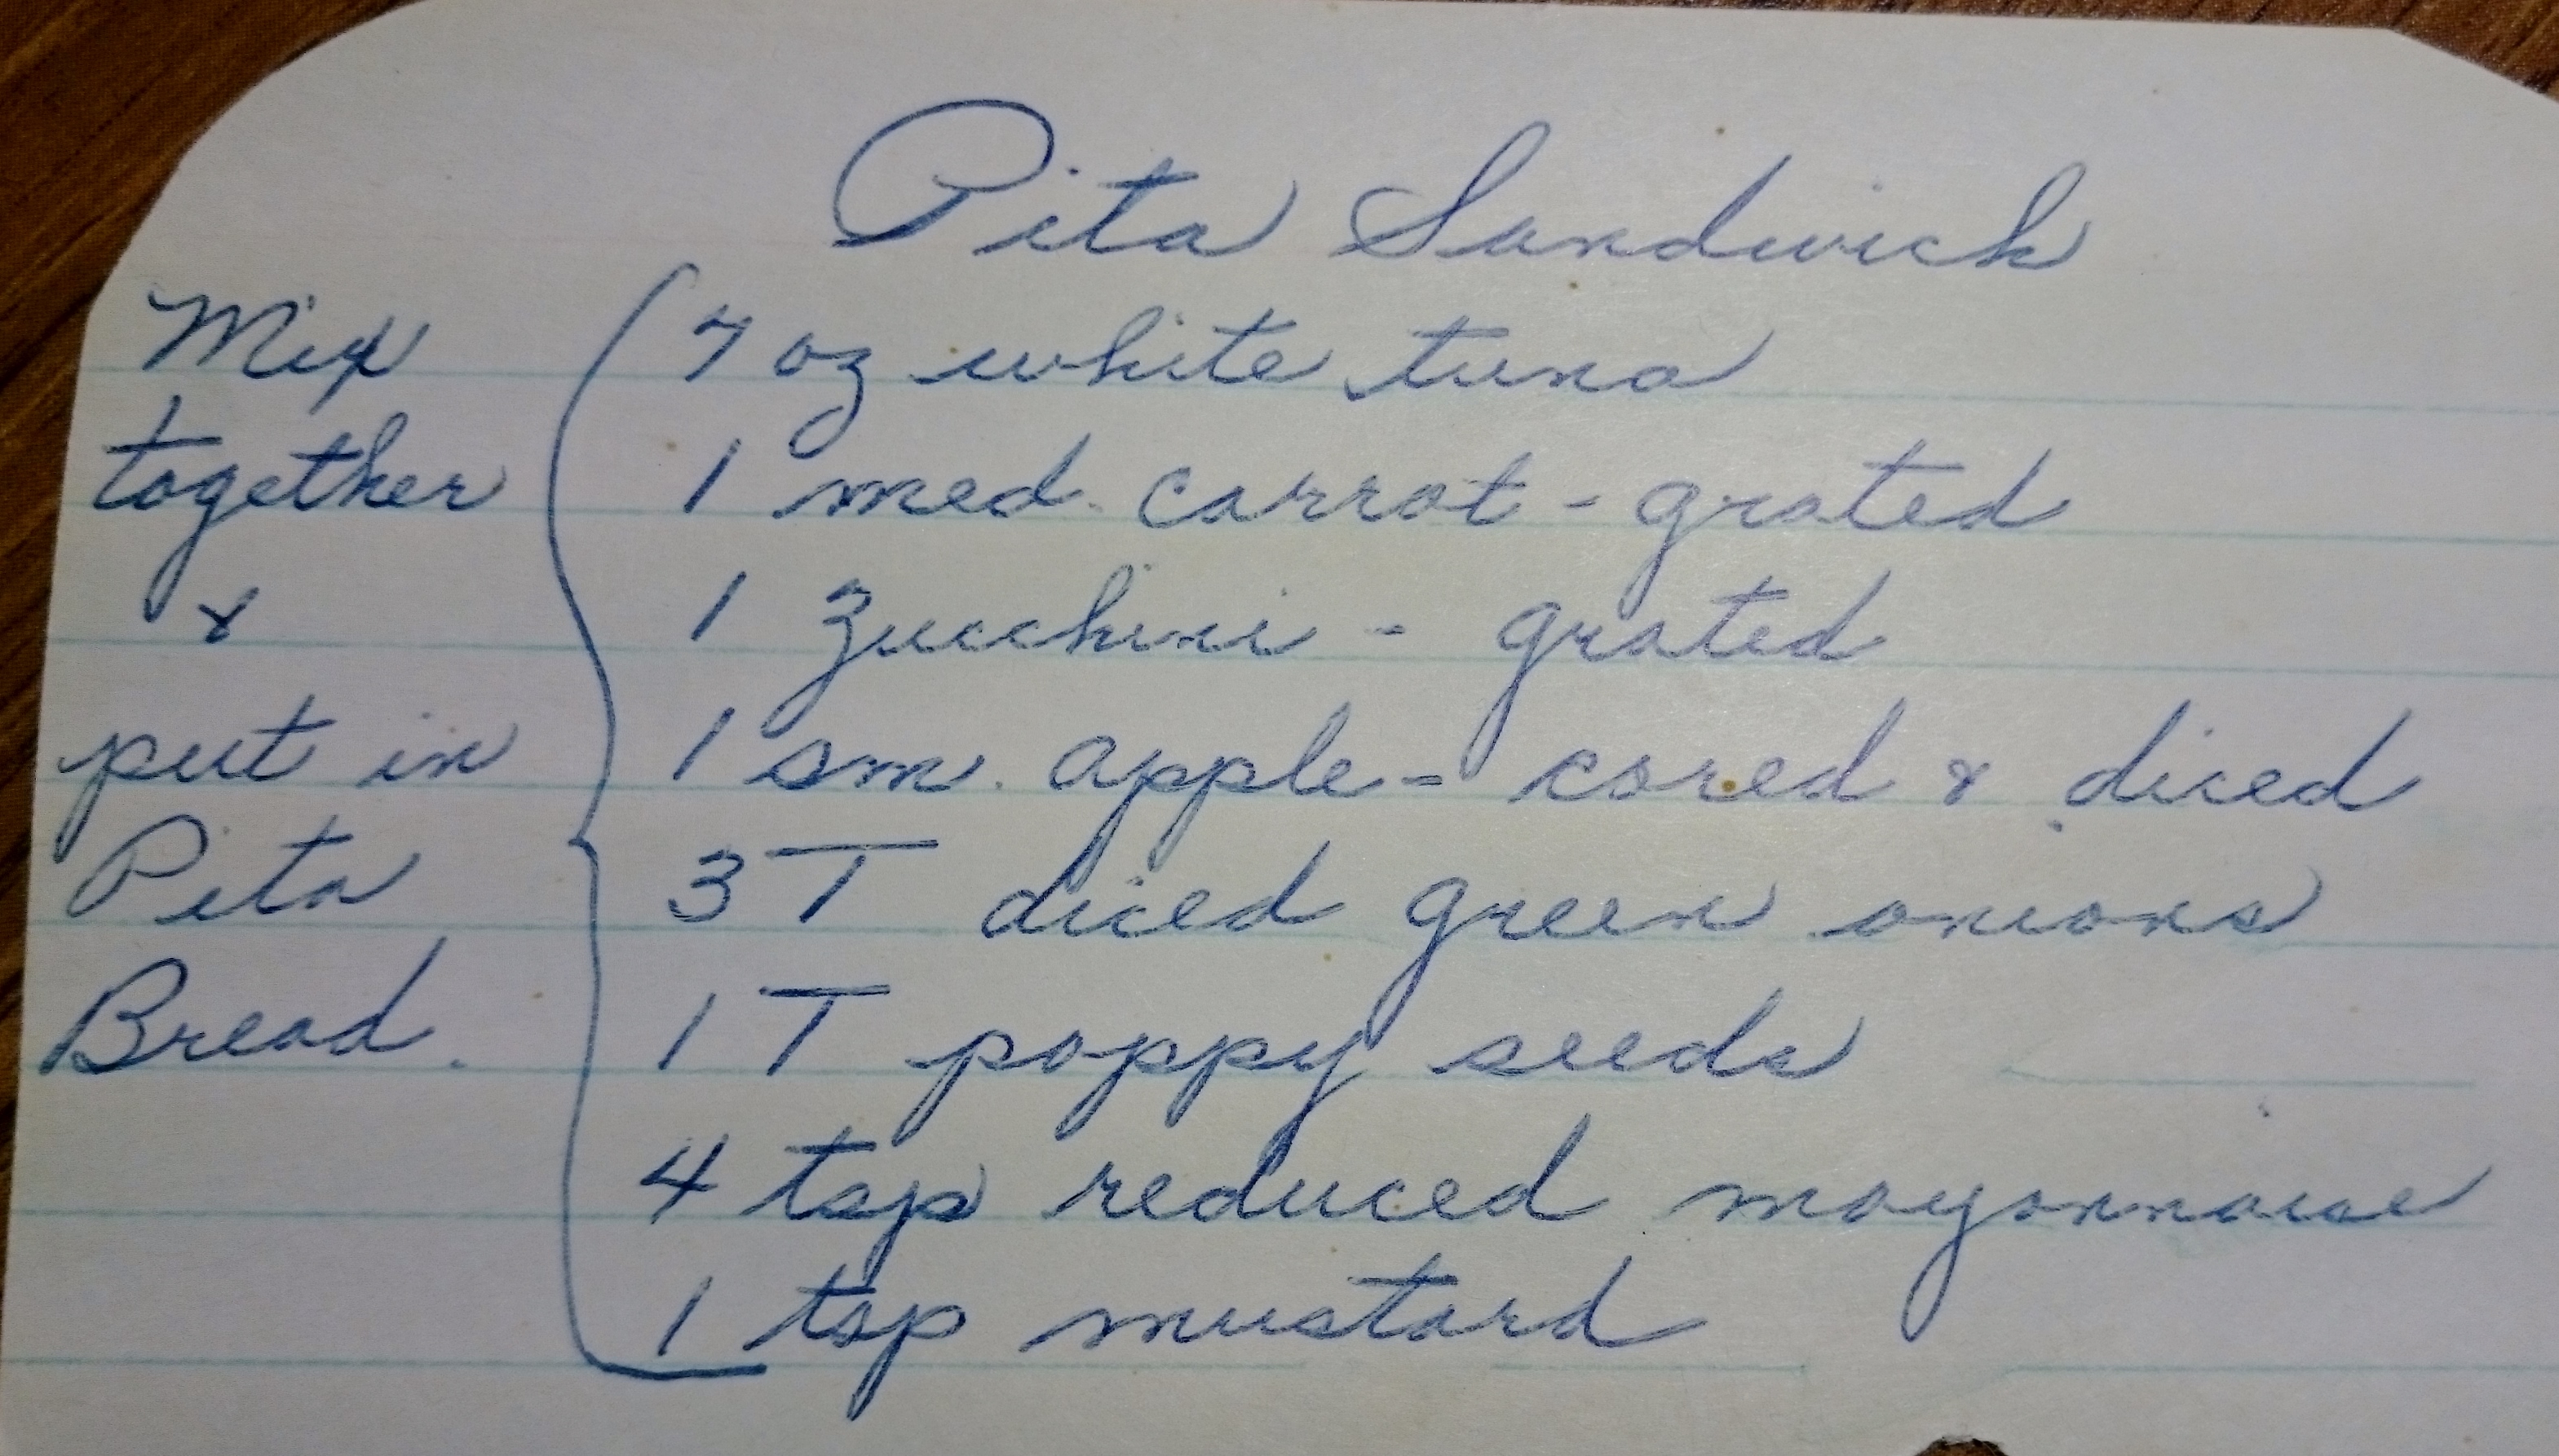 Pita Sandwich
Mix together & put in Pita Bread.
7 oz white tuna
1 med. carrot - grated
1 zucchini - grated
1 sm. apple - cored & diced
3 T diced green onions
1 T poppy seeds
4 tsp reduced mayonnaise
1 tsp mustard